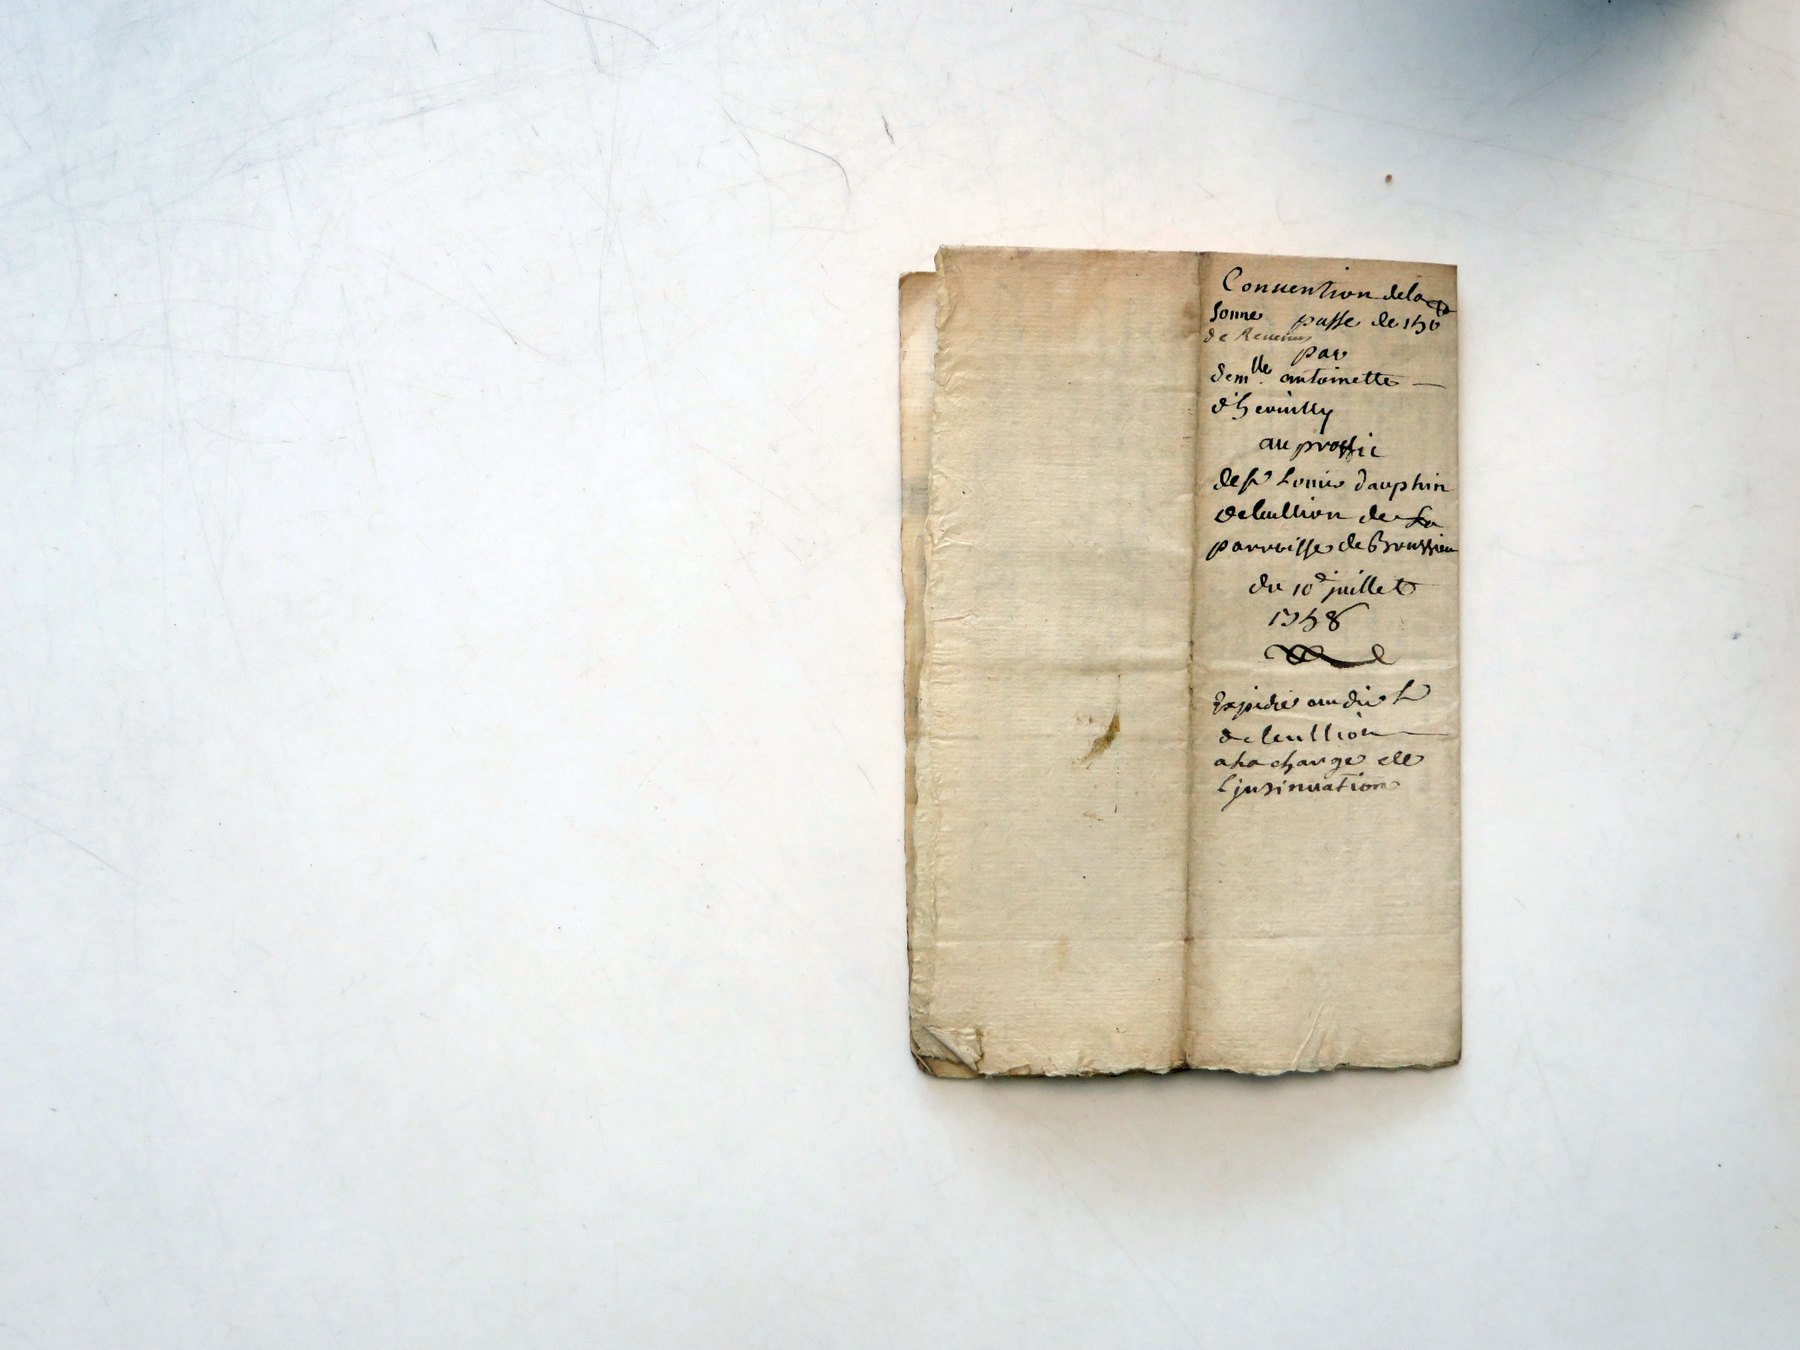 Convention de la
somme passe de 150
de Revenus
par
dem.lle antoinette
d'hervilly
au proffit
de sr Louis dauphin
de bullion de La
parroisse de Broussieu
du 10e juillet
1758
Expedié audit sr
de bullion
a la charge de
l'jnsinuation